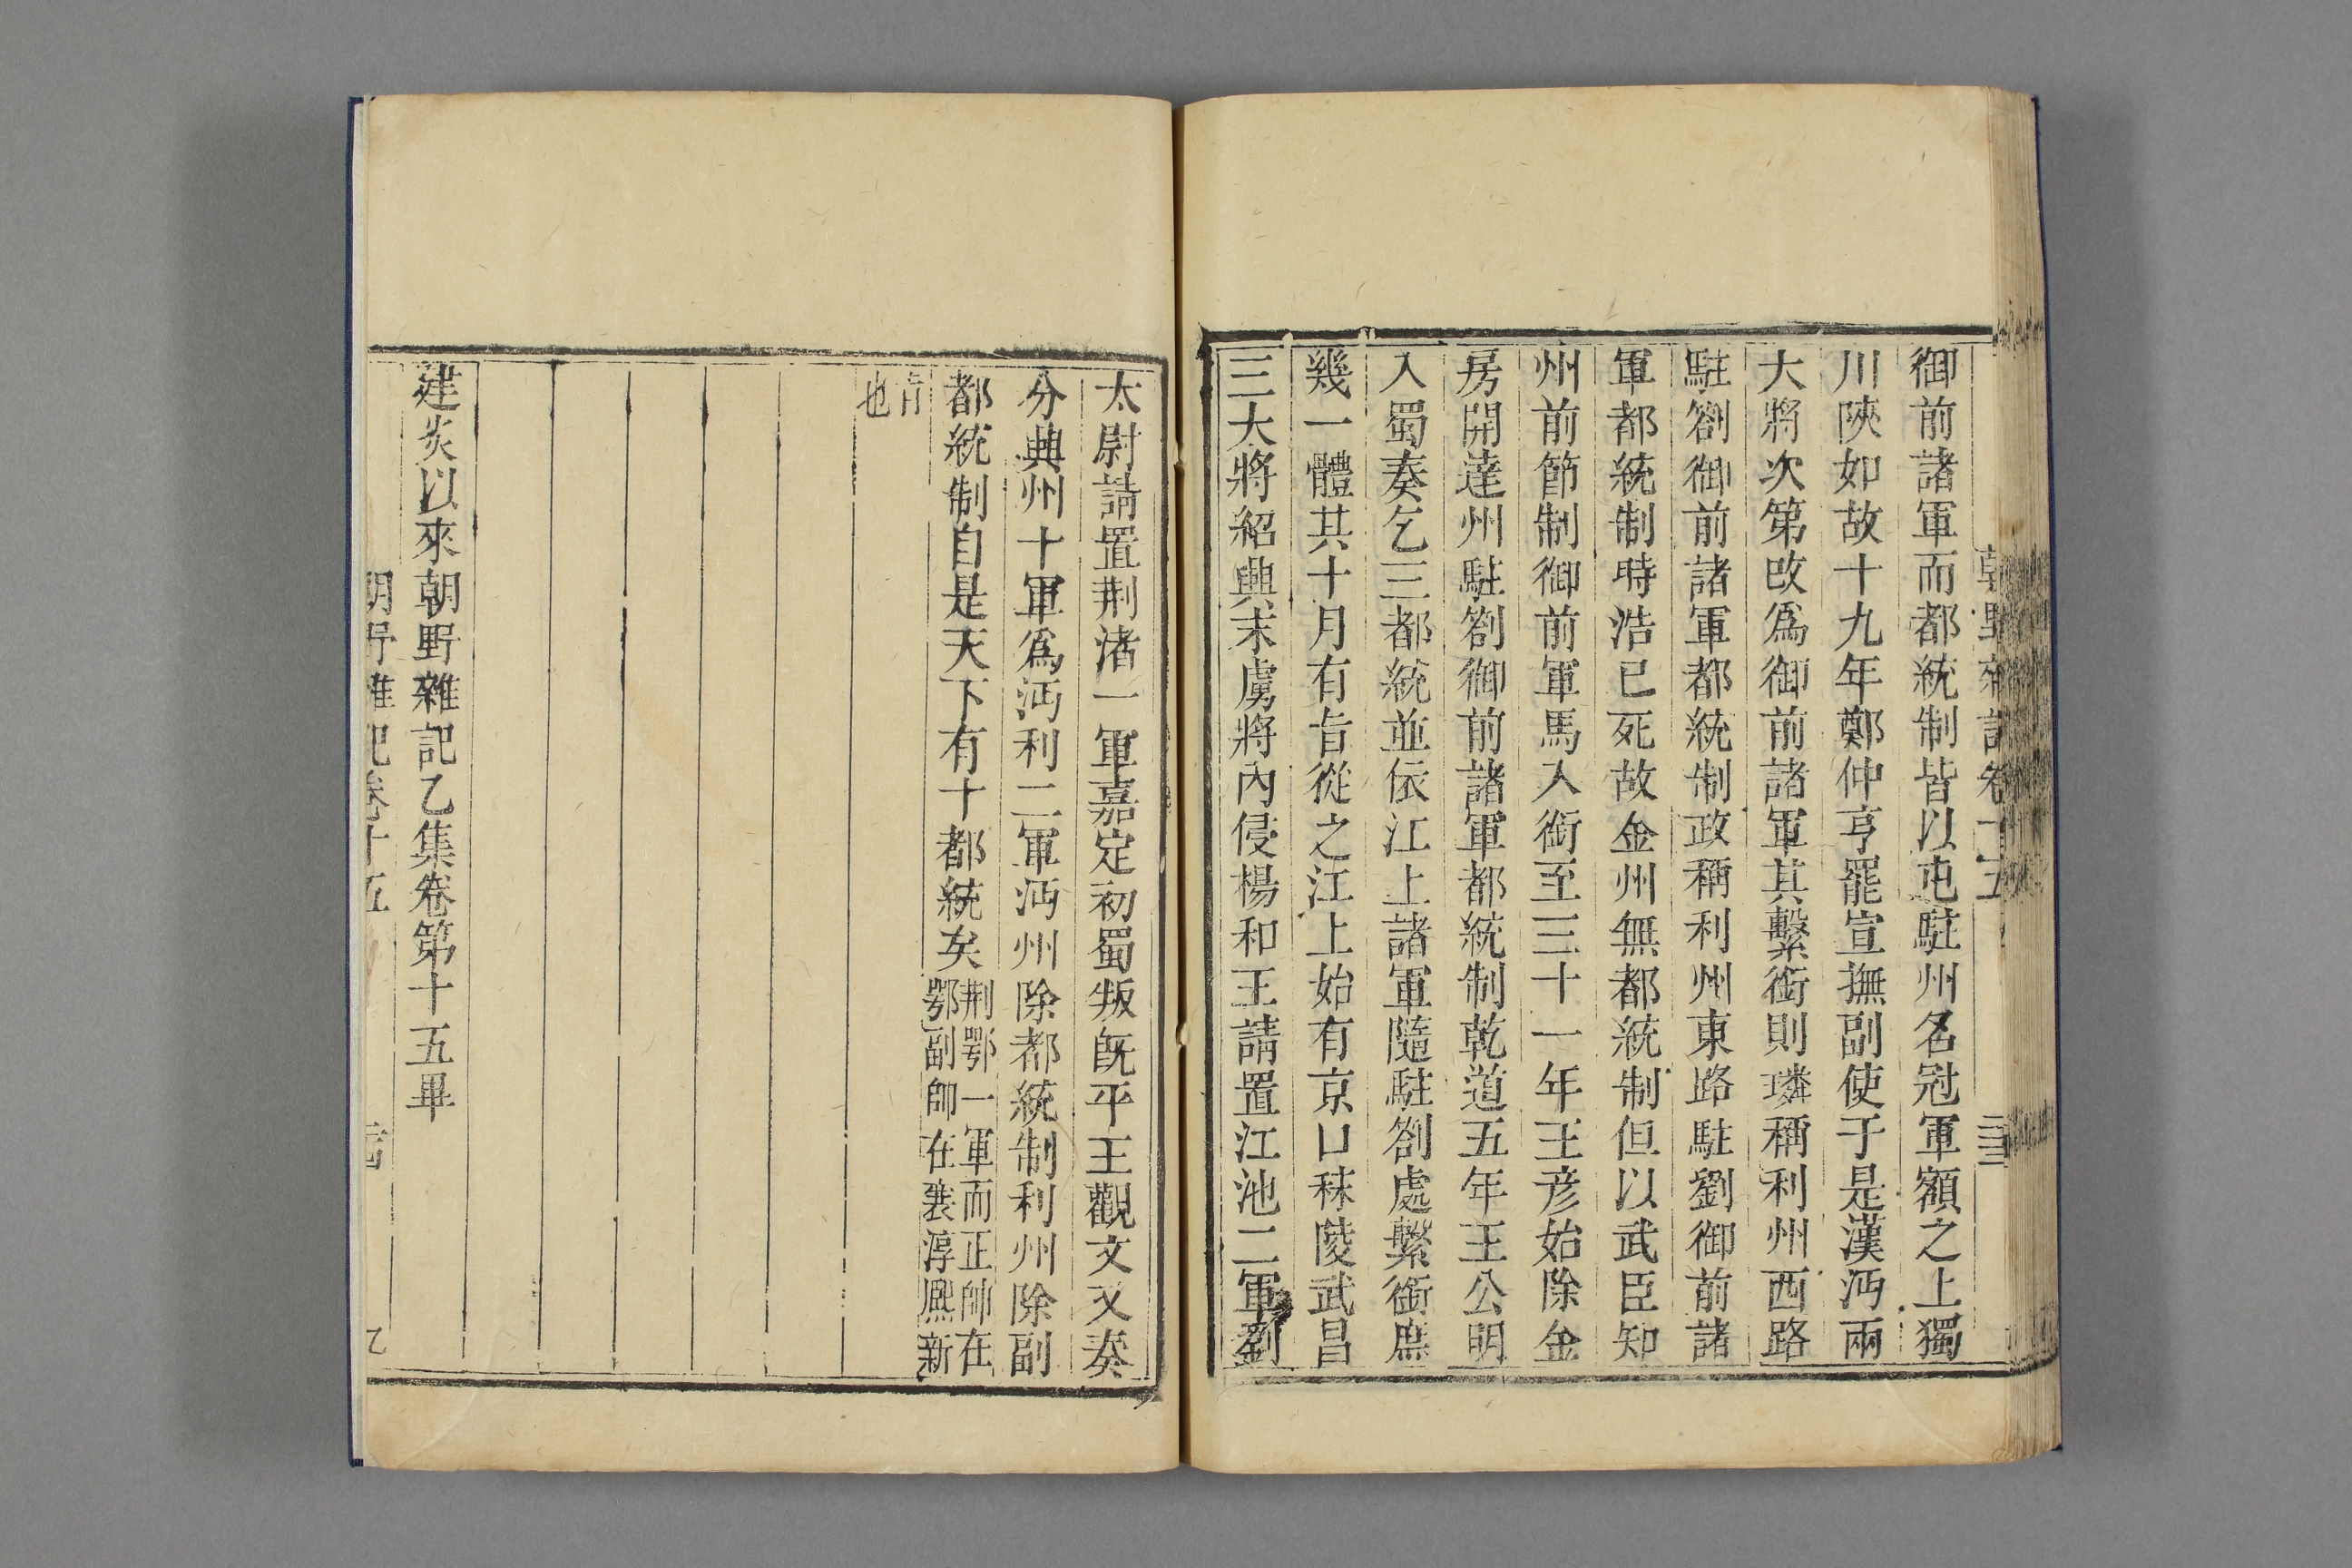 御前諸軍而都統制皆以屯駐州名冠軍額之上獨
川陝如故十九年鄭仲亨罷宣撫副使于是漢沔兩
大將次第改為御前諸軍其繫銜則璘稱利州西路
駐劄御前諸軍都統制政稱利州東路駐劉御前諸
軍都統制時浩已死故金州無都統制但以武臣知
州前節制御前軍馬入銜至三十一年王彦始除金
房開達州駐劄御前諸軍都統制乾道五年王公明
入蜀奏乞三都統並依江上諸軍隨駐劄處繫銜庶
幾一體其十月有旨從之江上始有京口秣陵武昌
三大將紹興末虜將內侵楊和王請置江池二軍劉
太尉請置荆渚一軍嘉定初蜀叛旣平王觀文又奏
分興州十軍為沔利二軍沔州除都統制利州除副
都統制自是天下有十都統矣
荆鄂一軍而正帥在
鄂副帥在襄淳熙新
旨
也
建炎以來朝野雜記乙集卷第十五畢
朝野雜記卷十五